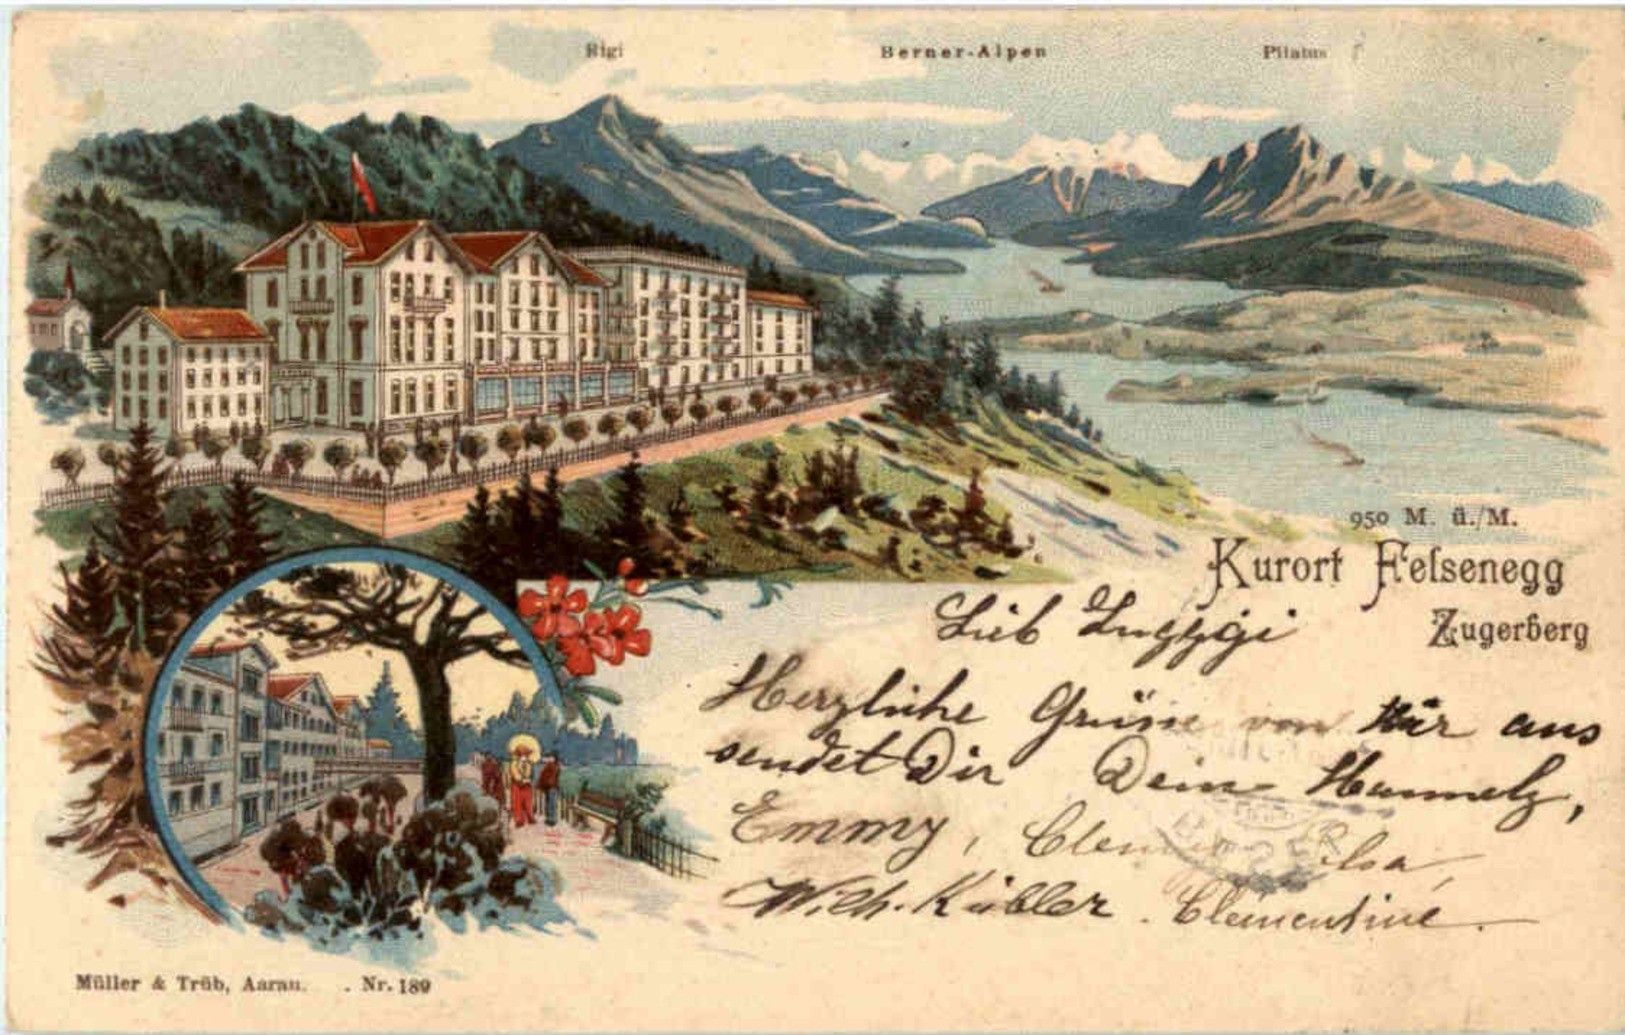 Rigi
Berner-Alpen
Pilatus
950 M. ü./M.
Kurort Felsenegg
Zugerberg
Lieb
Herzliche Grüsse von hier aus
sendet Dir Deine
Emmy,
Wilh. Kübler. Clementine.
Müller & Trüb, Aarau. . Nr. 189